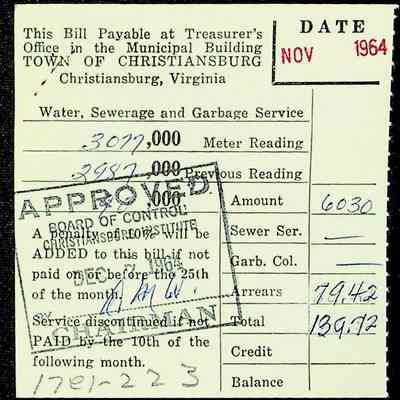 This Bill Payable at Treasurer's
Office in the Municipal Building
TOWN OF CHRISTIANSBURG
Christiansburg, Virginia
DATE
NOV 1964
Water, Sewerage and Garbage Service
3077,000 Meter Reading
2987,000 Previous Reading
,000 Amount 6030
APPROVED
BOARD OF CONTROL
CHRISTIANSBURG INSTITUTE
DEC 1964
BY
CHAIRMAN
A penalty of 10% will be
ADDED to this bill if not
paid on or before the 25th
of the month.
Service discontinued if not
PAID by the 10th of the
following month.
Sewer Ser. —
Garb. Col. —
Arrears 79.42
Total 139.72
Credit
Balance
1701-223